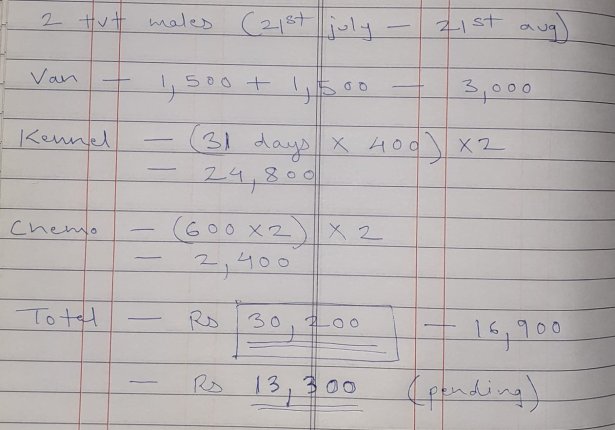 2 tvt males (21st july — 21st aug)
Van — 1,500 + 1,500 — 3,000
Kennel — (31 days × 400) × 2
— 24,800
Chemo — (600 × 2) × 2
= 2,400
Total — Rs 30,200 — 16,900
— Rs 13,300 (pending)